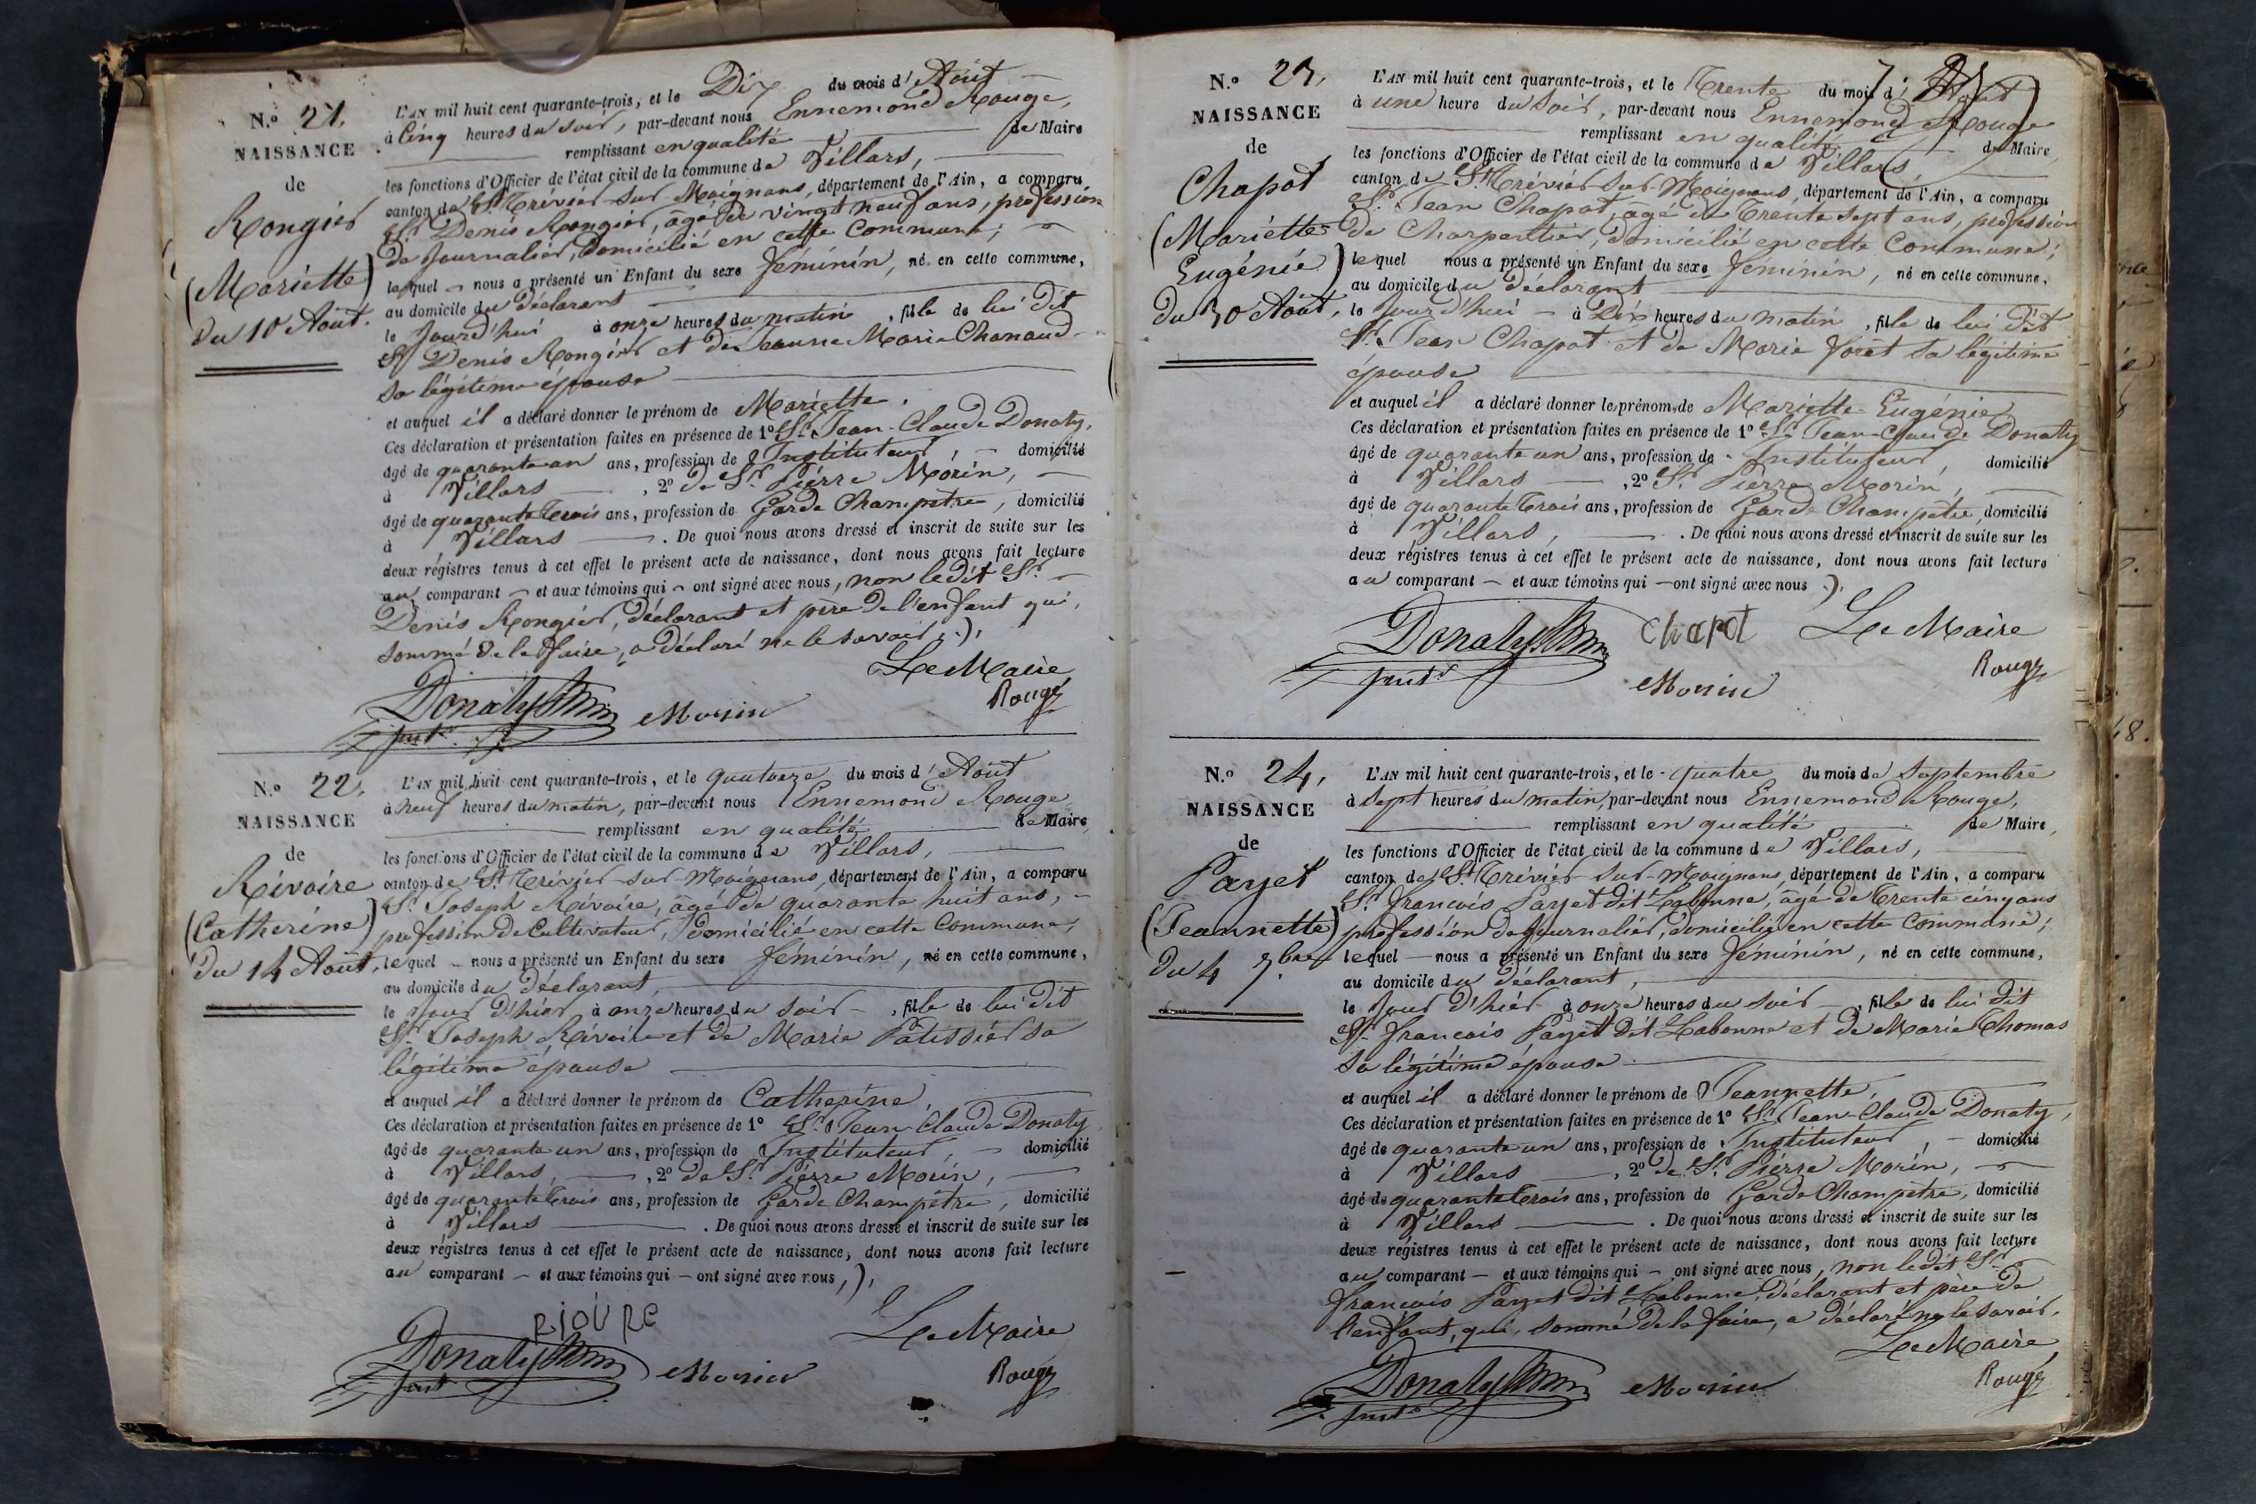 N.º 21.
NAISSANCE
de
Rongier
(Mariette)
du 10 Août.
L'AN mil huit cent quarante-trois, et le Dix du mois d'Août
à Cinq heures du soir, par-devant nous Ennemond Rouge,
remplissant en qualité de Maire
les fonctions d'Officier de l'état civil de la commune de Villars,
canton de St. Trévier-sur-Moignans, département de l'Ain, a comparu
Sr. Denis Rongier, âgé de vingt neuf ans, profession
de Journalier, domicilié en cette Commune;
lequel nous a présenté un Enfant du sexe féminin, né en cette commune,
au domicile du déclarant
le jourd'hui à onze heures du matin, fille de lui dit
Sr. Denis Rongier et de Jeanne Marie Chanaud
sa légitime épouse
et auquel il a déclaré donner le prénom de Mariette.
Ces déclaration et présentation faites en présence de 1º Sr. Jean-Claude Donaty,
âgé de quarante un ans, profession de Instituteur, domicilié
à Villars, 2º de Sr. Pierre Morin,
âgé de quarante trois ans, profession de Garde Champêtre, domicilié
à Villars. De quoi nous avons dressé et inscrit de suite sur les
deux régistres tenus à cet effet le présent acte de naissance, dont nous avons fait lecture
au comparant et aux témoins qui ont signé avec nous, non ledit Sr.
Denis Rongier, déclarant et père de l'enfant qui,
sommé de le faire, a déclaré ne le savoir.
Le Maire
Donaty
Morin
Rouge
instr
N.º 22.
NAISSANCE
de
Rivoire
(Catherine)
du 14 Août.
L'AN mil huit cent quarante-trois, et le quatorze du mois d'Août
à neuf heures du matin, par-devant nous Ennemond Rouge
remplissant en qualité de Maire,
les fonctions d'Officier de l'état civil de la commune de Villars,
canton de St. Trévier-sur-Moignans, département de l'Ain, a comparu
Sr. Joseph Rivoire, âgé de quarante huit ans,
profession de Cultivateur, domicilié en cette Commune,
lequel nous a présenté un Enfant du sexe féminin, né en cette commune,
au domicile du déclarant,
le jour d'hier à onze heures du soir, fille de lui dit
Sr. Joseph Rivoire et de Marie Pâtissier sa
légitime épouse
et auquel il a déclaré donner le prénom de Catherine,
Ces déclaration et présentation faites en présence de 1º Sr. Jean-Claude Donaty
âgé de quarante un ans, profession de Instituteur, domicilié
à Villars, 2º de Sr. Pierre Morin,
âgé de quarante trois ans, profession de Garde Champêtre, domicilié
à Villars. De quoi nous avons dressé et inscrit de suite sur les
deux régistres tenus à cet effet le présent acte de naissance, dont nous avons fait lecture
au comparant et aux témoins qui ont signé avec nous,
RIOVRE
Le Maire
Donaty
Morin
Rouge
instr
N.º 23.
NAISSANCE
de
Chapot
(Mariette
Eugénie)
du 30 Août.
L'AN mil huit cent quarante-trois, et le Trente du mois d'Août
à une heure du soir, par-devant nous Ennemond Rouge
remplissant en qualité de Maire
les fonctions d'Officier de l'état civil de la commune de Villars,
canton de St. Trévier sur-Moignans, département de l'Ain, a comparu
Sr. Jean Chapot, âgé de Trente sept ans, profession
de Charpentier, domicilié en cette Commune;
lequel nous a présenté un Enfant du sexe féminin, né en cette commune,
au domicile du déclarant
le jourd'hui à Dix heures du matin, fille de lui dit
Sr. Jean Chapot et de Marie Forêt sa légitime
épouse
et auquel il a déclaré donner les prénoms de Mariette-Eugénie
Ces déclaration et présentation faites en présence de 1º Sr. Jean-Claude Donaty
âgé de quarante un ans, profession de Instituteur, domicilié
à Villars, 2º Sr. Pierre Morin,
âgé de quarante trois ans, profession de Garde Champêtre, domicilié
à Villars. De quoi nous avons dressé et inscrit de suite sur les
deux régistres tenus à cet effet le présent acte de naissance, dont nous avons fait lecture
au comparant et aux témoins qui ont signé avec nous.
Donaty
Chapot
Le Maire
instr
Morin
Rouge
N.º 24.
NAISSANCE
de
Payet
(Jeannette)
du 4 7bre
L'AN mil huit cent quarante-trois, et le quatre du mois de Septembre
à sept heures du matin, par-devant nous Ennemond Rouge,
remplissant en qualité de Maire,
les fonctions d'Officier de l'état civil de la commune de Villars,
canton de St. Trévier-sur-Moignans, département de l'Ain, a comparu
Sr. François Payet dit Labonne, âgé de Trente cinq ans
profession de Journalier, domicilié en cette Commune;
lequel nous a présenté un Enfant du sexe féminin, né en cette commune,
au domicile du déclarant,
le jour d'hier à onze heures du soir, fille de lui dit
Sr. François Payet dit Labonne et de Marie Thomas
sa légitime épouse
et auquel il a déclaré donner le prénom de Jeannette,
Ces déclaration et présentation faites en présence de 1º Sr. Jean-Claude Donaty,
âgé de quarante un ans, profession de Instituteur, domicilié
à Villars, 2º de Sr. Pierre Morin,
âgé de quarante trois ans, profession de Garde Champêtre, domicilié
à Villars. De quoi nous avons dressé et inscrit de suite sur les
deux régistres tenus à cet effet le présent acte de naissance, dont nous avons fait lecture
au comparant et aux témoins qui ont signé avec nous, non ledit Sr.
François Payet dit Labonne, déclarant et père de
l'enfant, qui, sommé de le faire, a déclaré ne le savoir.
Le Maire
Donaty
Morin
Rouge
instr